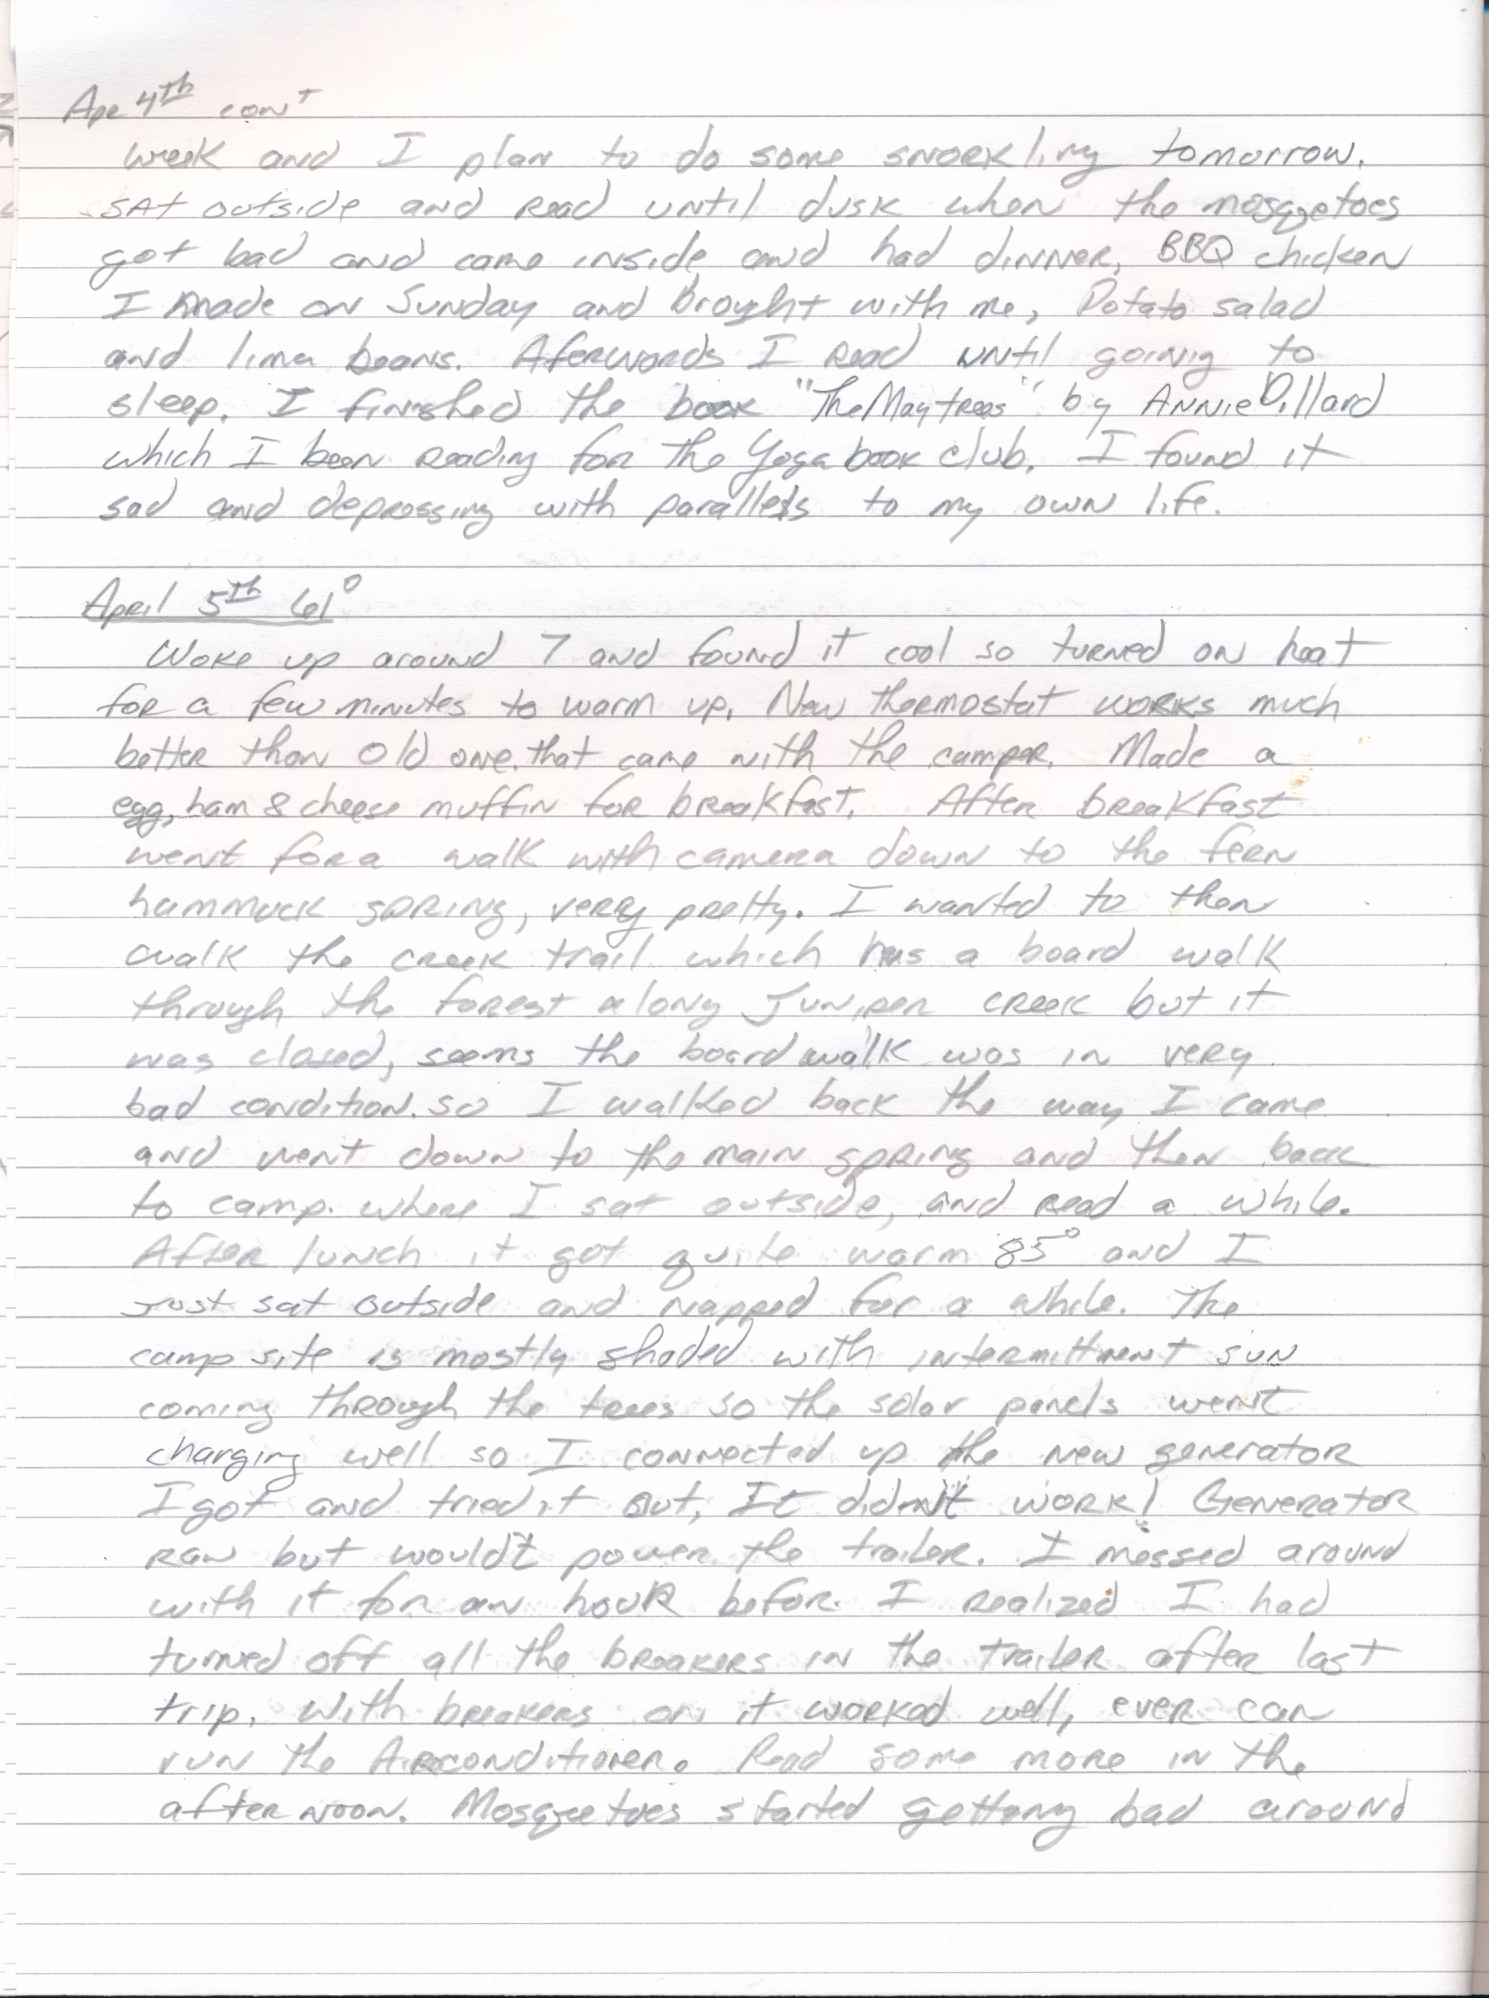 Apr 4th con't
week and I plan to do some snorkling tomorrow.
Sat outside and read until dusk when the mosqeetoes
got bad and came inside and had dinner, BBQ chicken
I made on Sunday and brought with me, Potato salad
and lima beans. Aferwords I read until going to
sleep. I finished the book "The Maytrees" by Annie Dillard
which I been reading for the Yoga book club. I found it
sad and depressing with parallels to my own life.
April 5th 61°
Woke up around 7 and found it cool so turned on heat
for a few minutes to warm up. New thermostat works much
better than old one that came with the camper. Made a
egg, ham & cheese muffin for breakfast. After breakfast
went for a walk with camera down to the fern
hammock spring, very pretty. I wanted to then
walk the creek trail which has a board walk
through the forest along Juniper creek but it
was closed, seems the board walk was in very
bad condition. so I walked back the way I came
and went down to the main spring and then back
to camp. where I sat outside, and read a while.
After lunch it got quite warm 85° and I
just sat outside and napped for a while. The
camp site is mostly shaded with intermittment sun
coming through the trees so the solar panels wern't
charging well so I connected up the new generator
I got and tried it out, It didn't work! Generator
ran but would't power the trailer. I messed around
with it for an hour befor I realized I had
turned off all the breakers in the trailer after last
trip. With breakers on it worked well, even can
run the Airconditioner. Read some more in the
after noon. Mosqeetoes started getting bad around